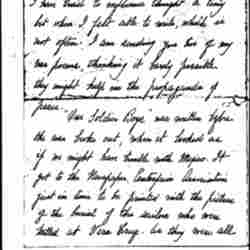 I have tried to
but when I felt able to write, which is
not often. I am sending you two of my
war poems, thinking it barely possible
they might help in the propaganda of
peace.
Our Soldier Boys was written before
the war broke out, when it looked as
if we might have trouble with Mexico. It
got to the Newspaper Enterprise Association
just in time to be printed with the picture
of the burial of the sailors who were
killed at Vera Cruz. As they were all